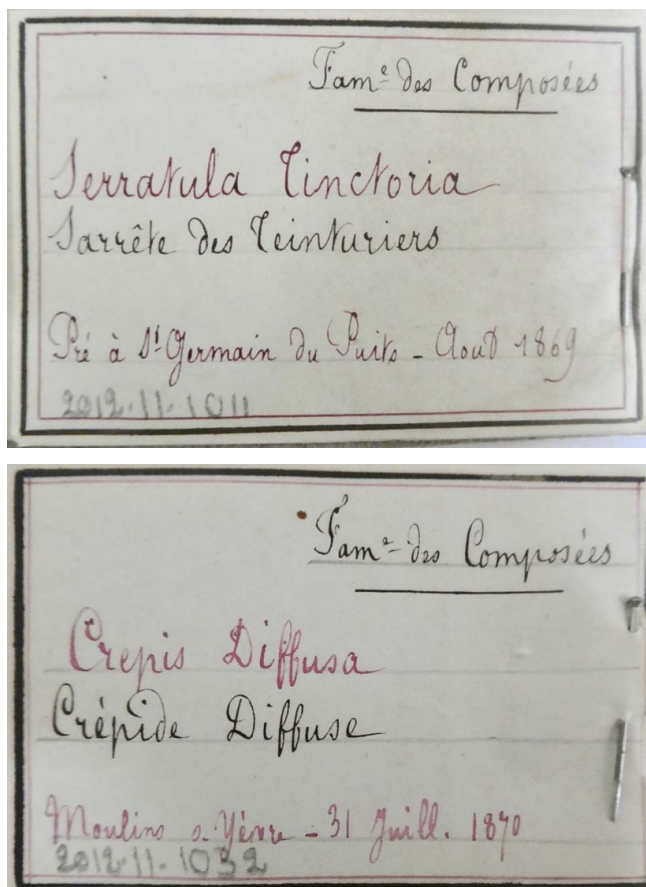 Fam.e des Composées
Serratula Tinctoria
Sarrête des Teinturiers
Pré à St. Germain du Puits - Aout 1869
2012.11.1011
Fam.e des Composées
Crepis Diffusa
Crépide Diffuse
Moulins s. Yèvre - 31 Juill. 1870
2012.11.1032